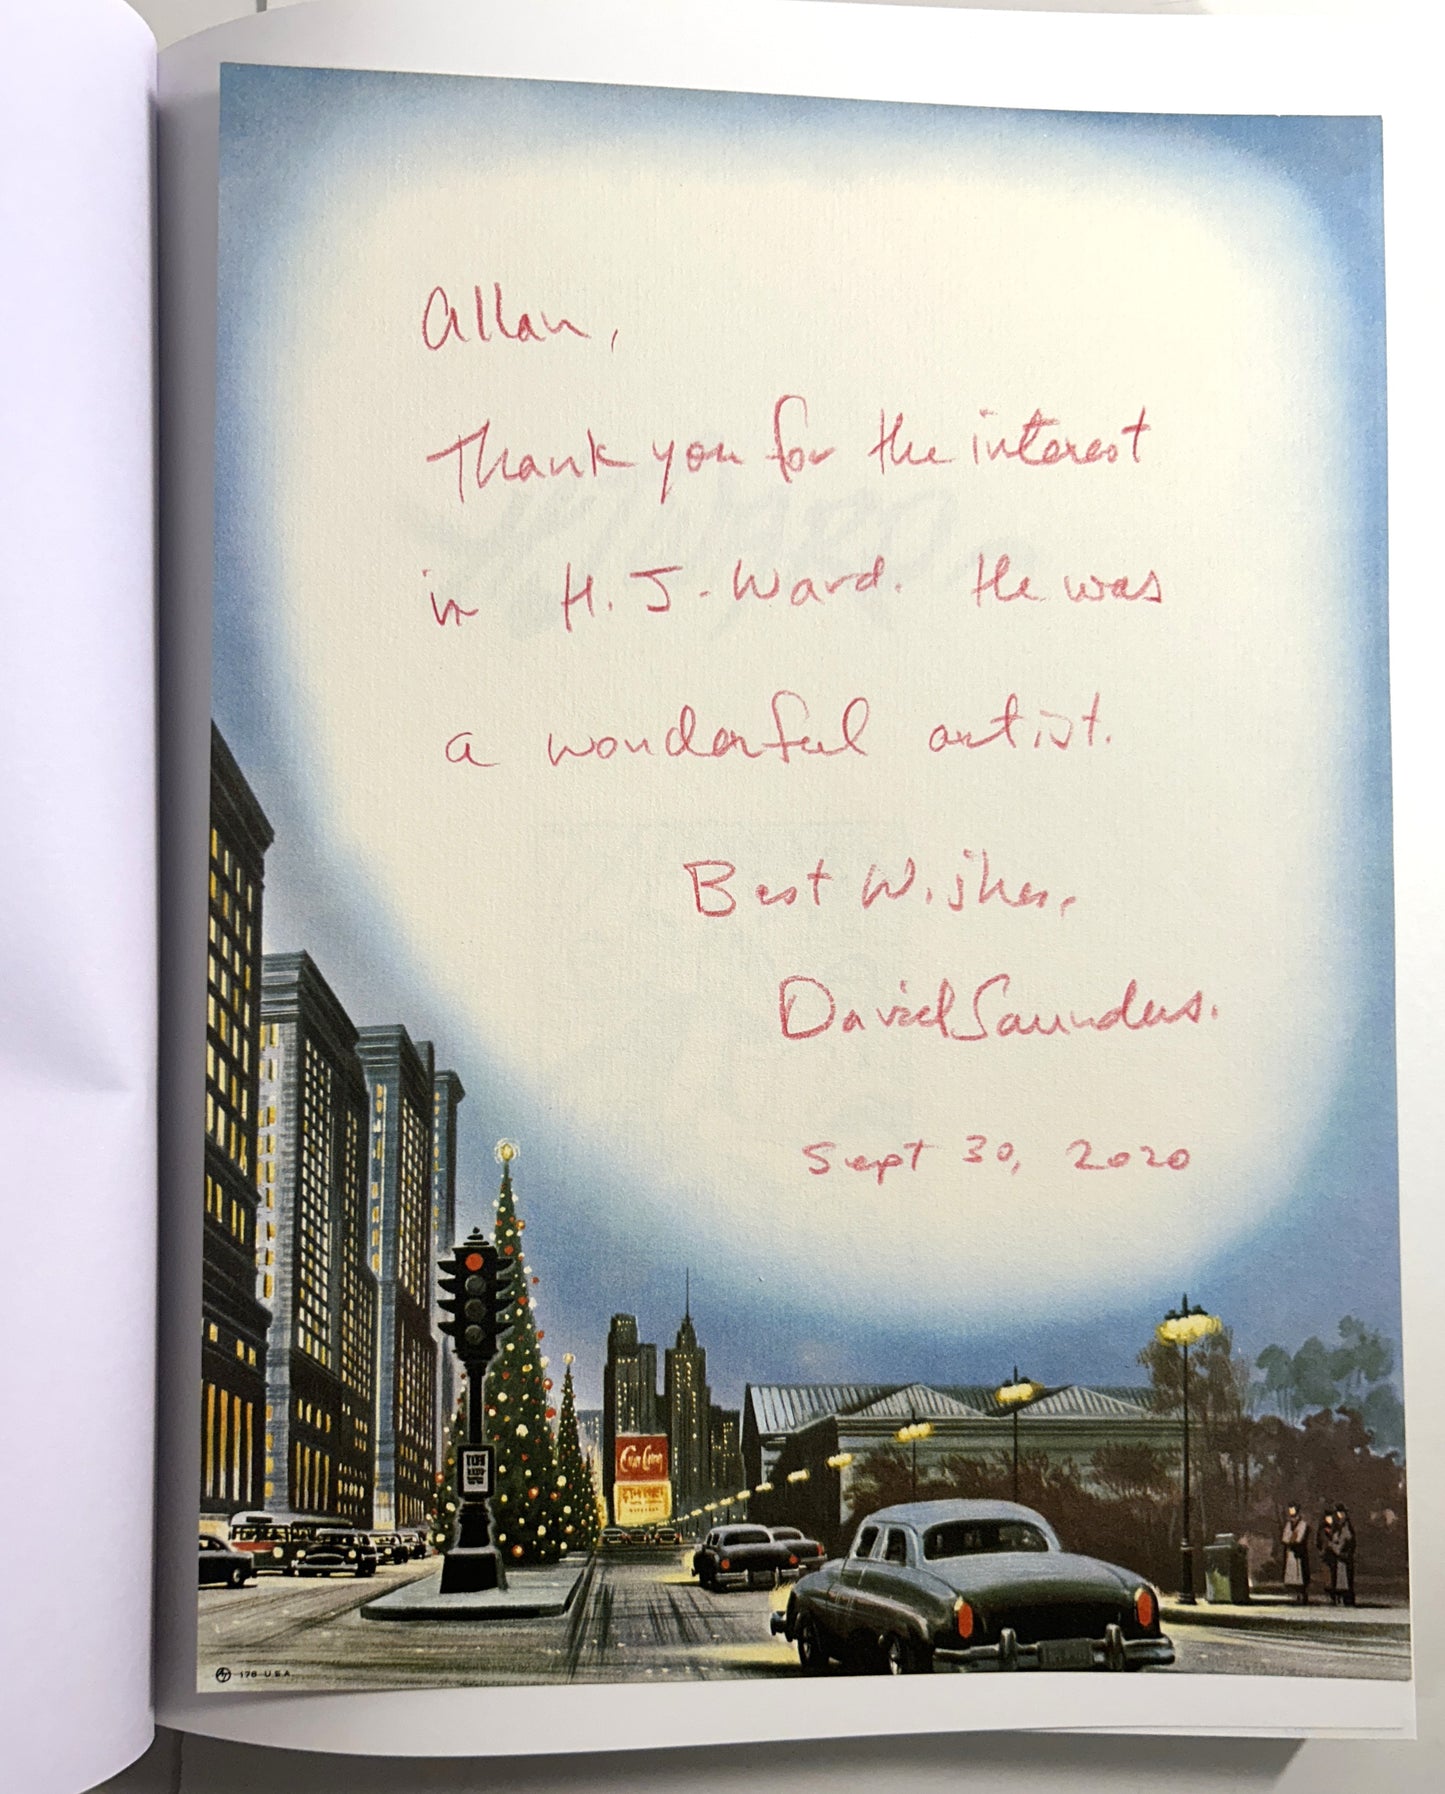 Allan,
Thank you for the interest
in H. J. Ward. He was
a wonderful artist.
Best Wishes,
David Saunders.
Sept 30, 2020
178 U.S.A.